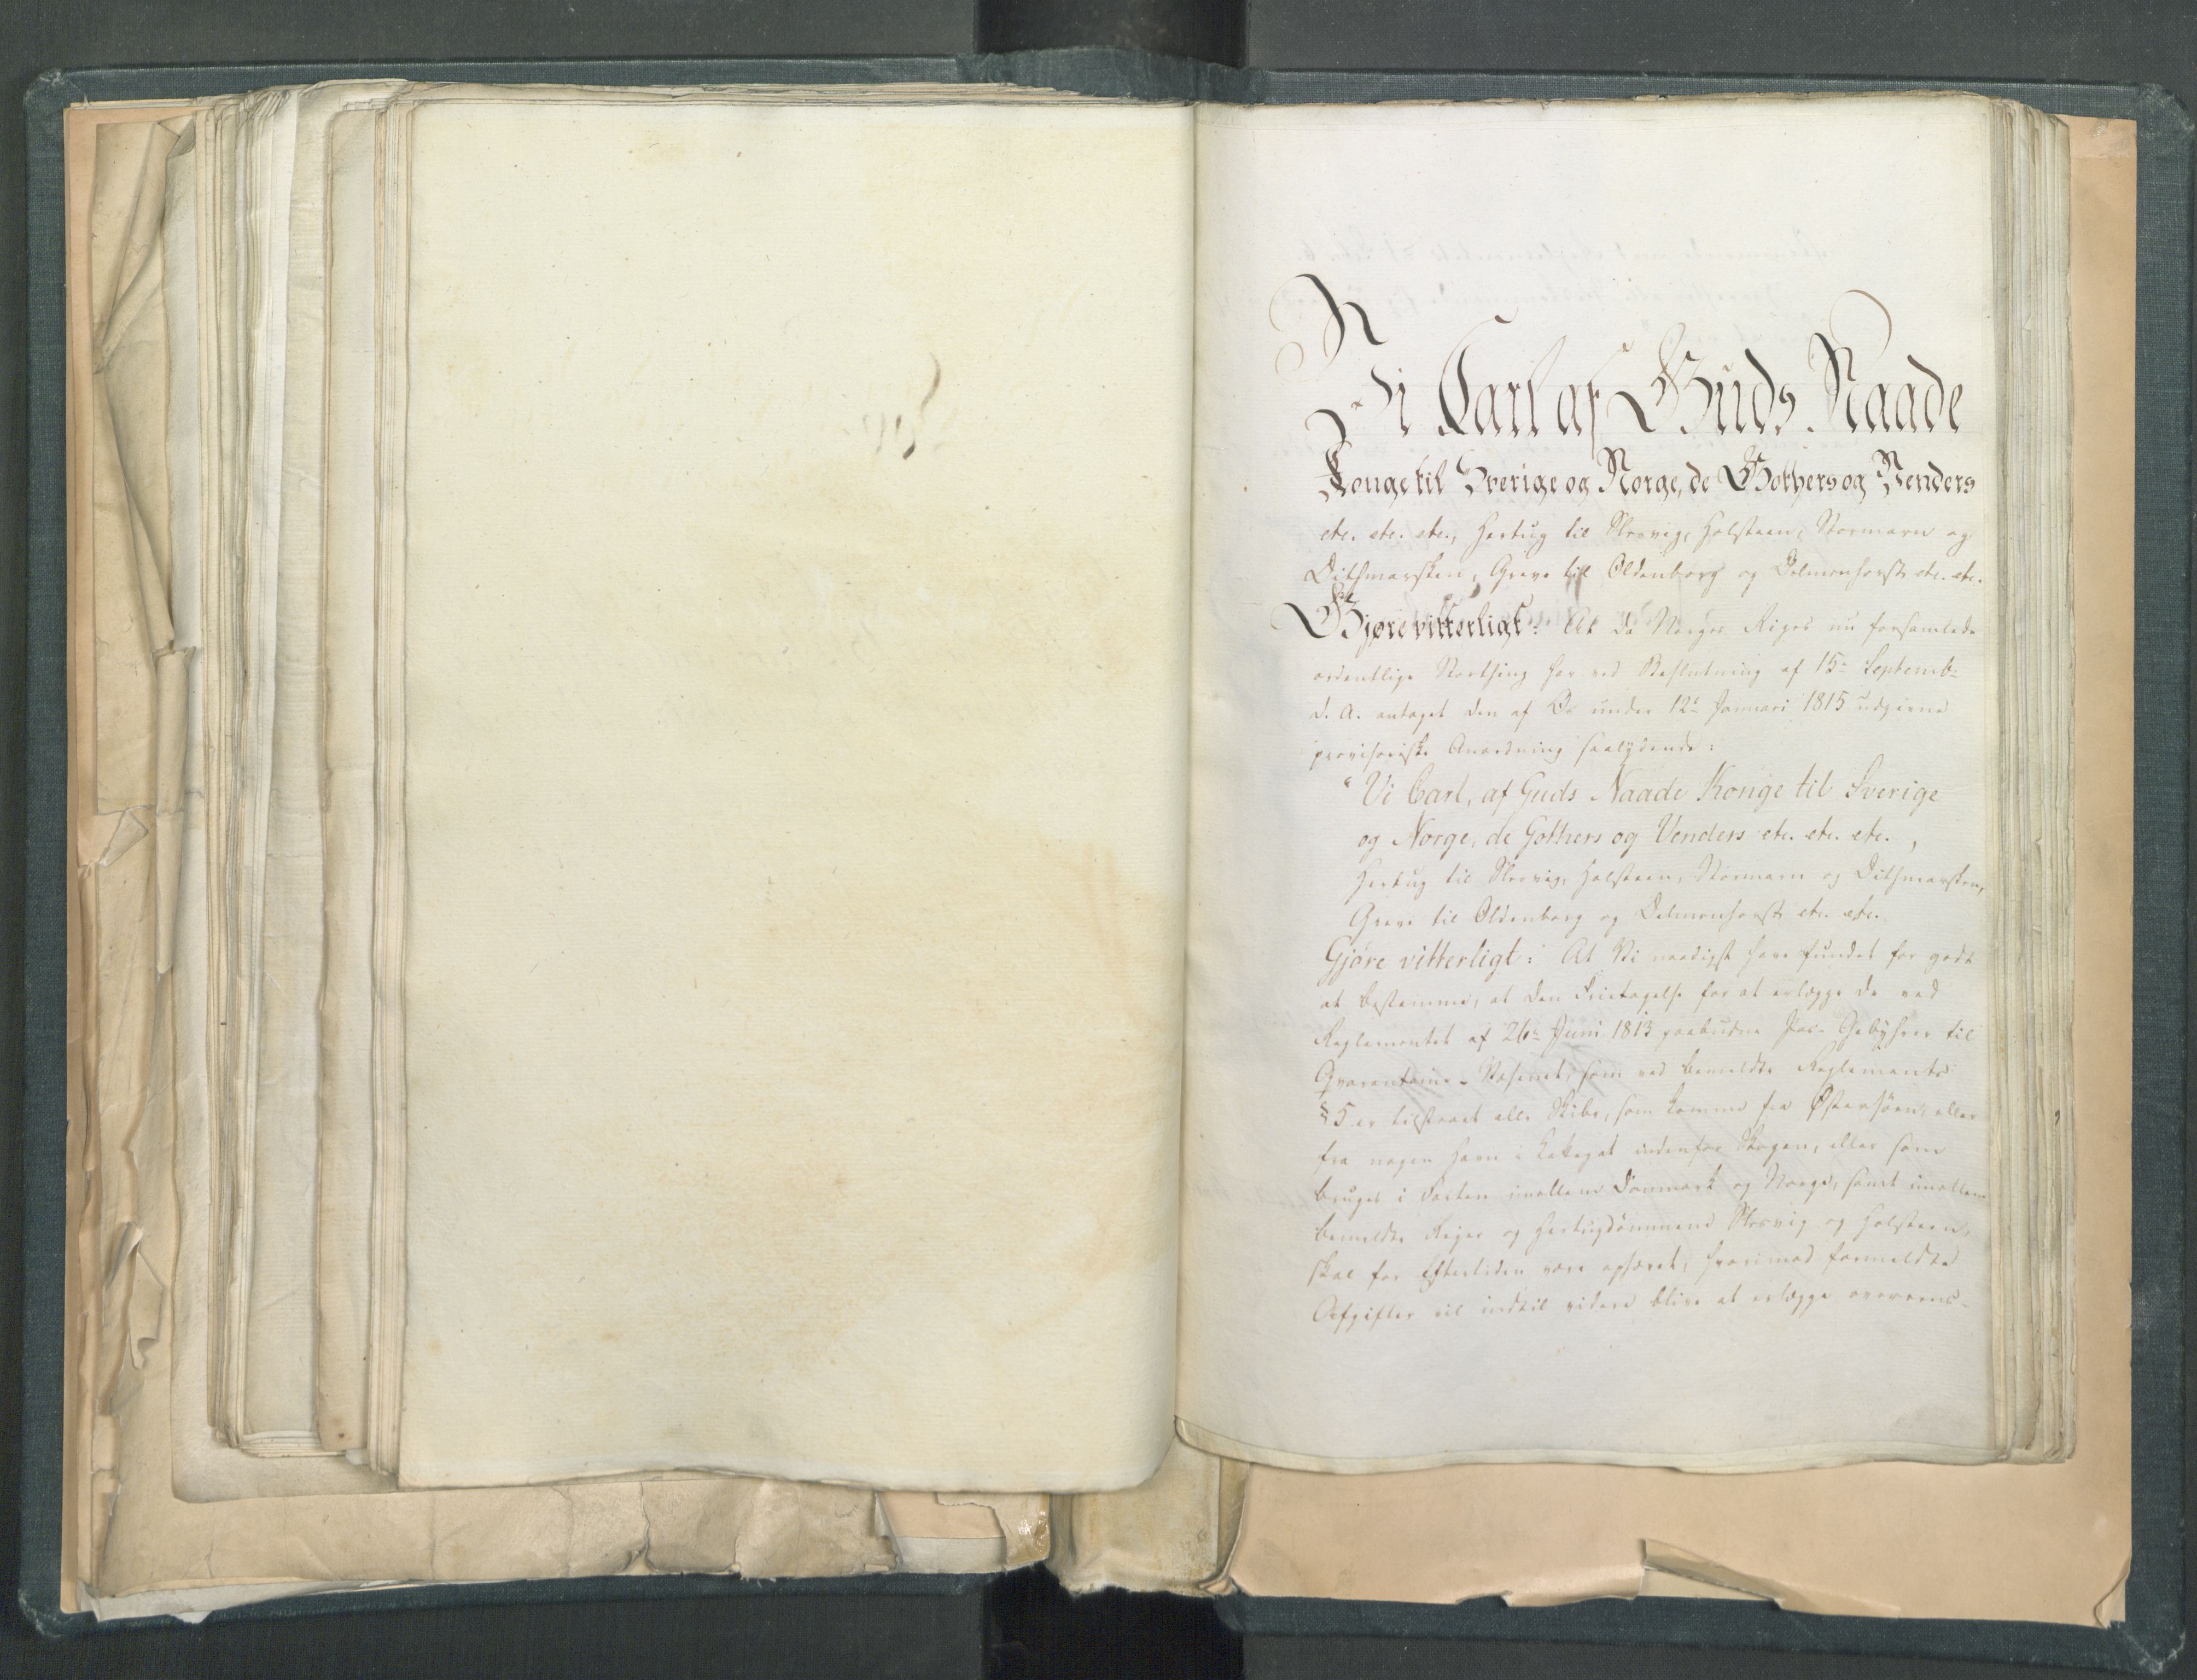 Vi Carl af Guds Naade
Konge til Sverige og Norge, de Gothers og Venders
etc. etc. etc., Hertug til Slesvig, Holsteen, Stormarn og
Dithmarsken, Greve til Oldenborg og Delmenhorst etc. etc.
Gjøre vitterligt: At da Norges Riges nu forsamlede
ordentlige Storthing har ved Beslutning af 15de Septemb:
d. A. antaget den af Os under 12te Januari 1815 udgivne
provisoriske Anordning saalydende:
"Vi Carl, af Guds Naade Konge til Sverige
og Norge, de Gothers og Venders etc. etc. etc.,
Hertug til Slesvig, Holsteen, Stormarn og Dithmarsken,
Greve til Oldenborg og Delmenhorst etc. etc.
Gjøre vitterligt: At Vi naadigst have fundet for godt
at bestemme, at den Fritagelse for at erlægge de ved
Reglementet af 26de Juni 1813 paabudne Gebyhrer til
Qvarantaine-Væsenet, som ved bemeldte Reglements
§ 5 er tilstaaet alle Skibe, som komme fra Østersöen, eller
fra nogen Havn i Kattegat indenfor Skagen, eller som
bruges i Farten imellem Danmark og Norge, samt imellem
bemeldte Riger og Hertugdömmene Slesvig og Holsteen,
skal for Eftertiden være ophævet, hvorimod formeldte
Afgifter vil indtil videre blive at erlægge overeens-